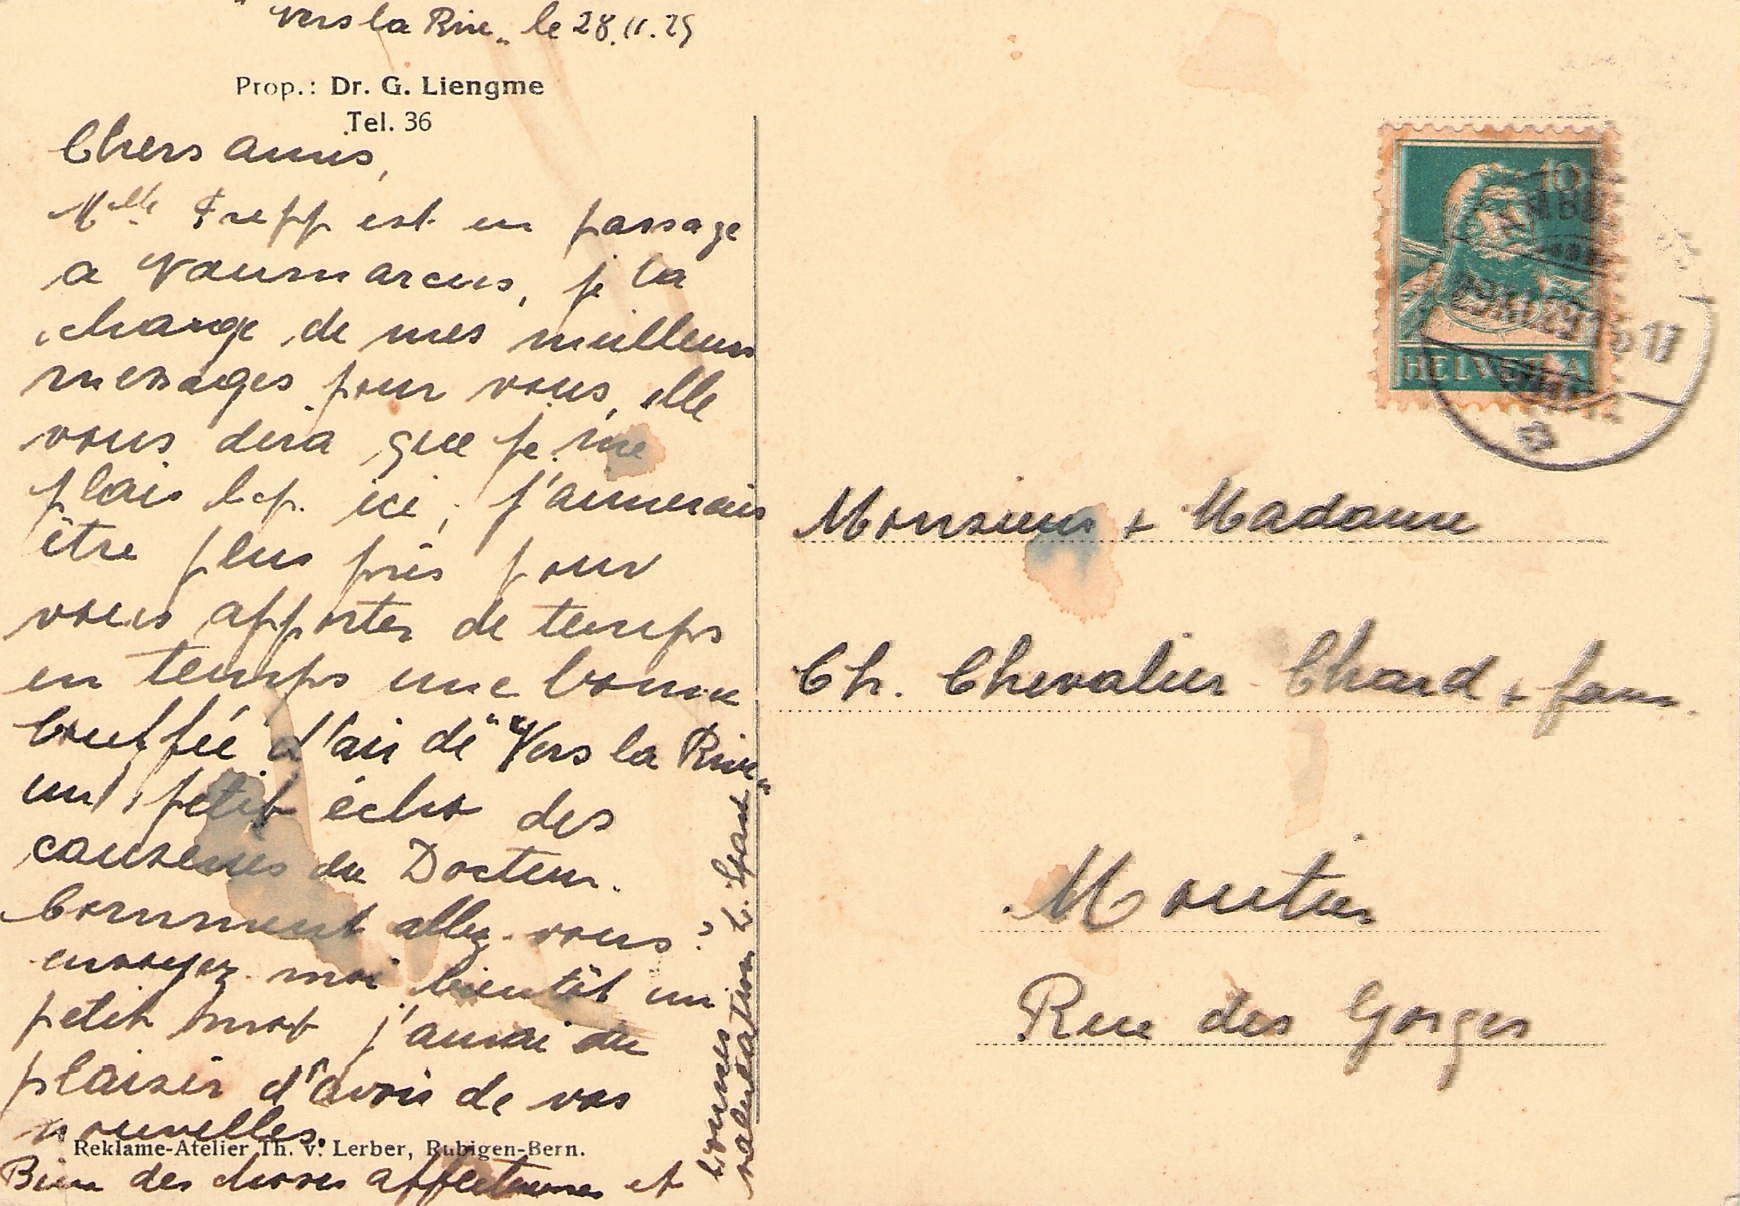 "Vers la Rive" le 28.11.29
Prop.: Dr. G. Liengme
Tel. 36
Chers amis,
Mlle Frepp est en passage
a Vaumarcus, je la
charge de mes meilleurs
messages pour vous, elle
vous dira que je me
plais bcp. ici, j'aimerais
être plus près pour
vous apporter de temps
en temps une bonne
bouffée d'air de "Vers la Rive"
un petit écho des
causeries du Docteur.
Comment allez-vous?
envoyez moi bientôt un
petit mot j'aurai du
plaisir d'avoir de vos
nouvelles.
Reklame-Atelier Th. v. Lerber, Rubigen-Bern.
Bien des choses affectueuses et
bonnes
salutations
HELVETIA
10
17
Monsieur & Madame
Ch. Chevalier Chard & fam.
Moutier
Rue des Gorges